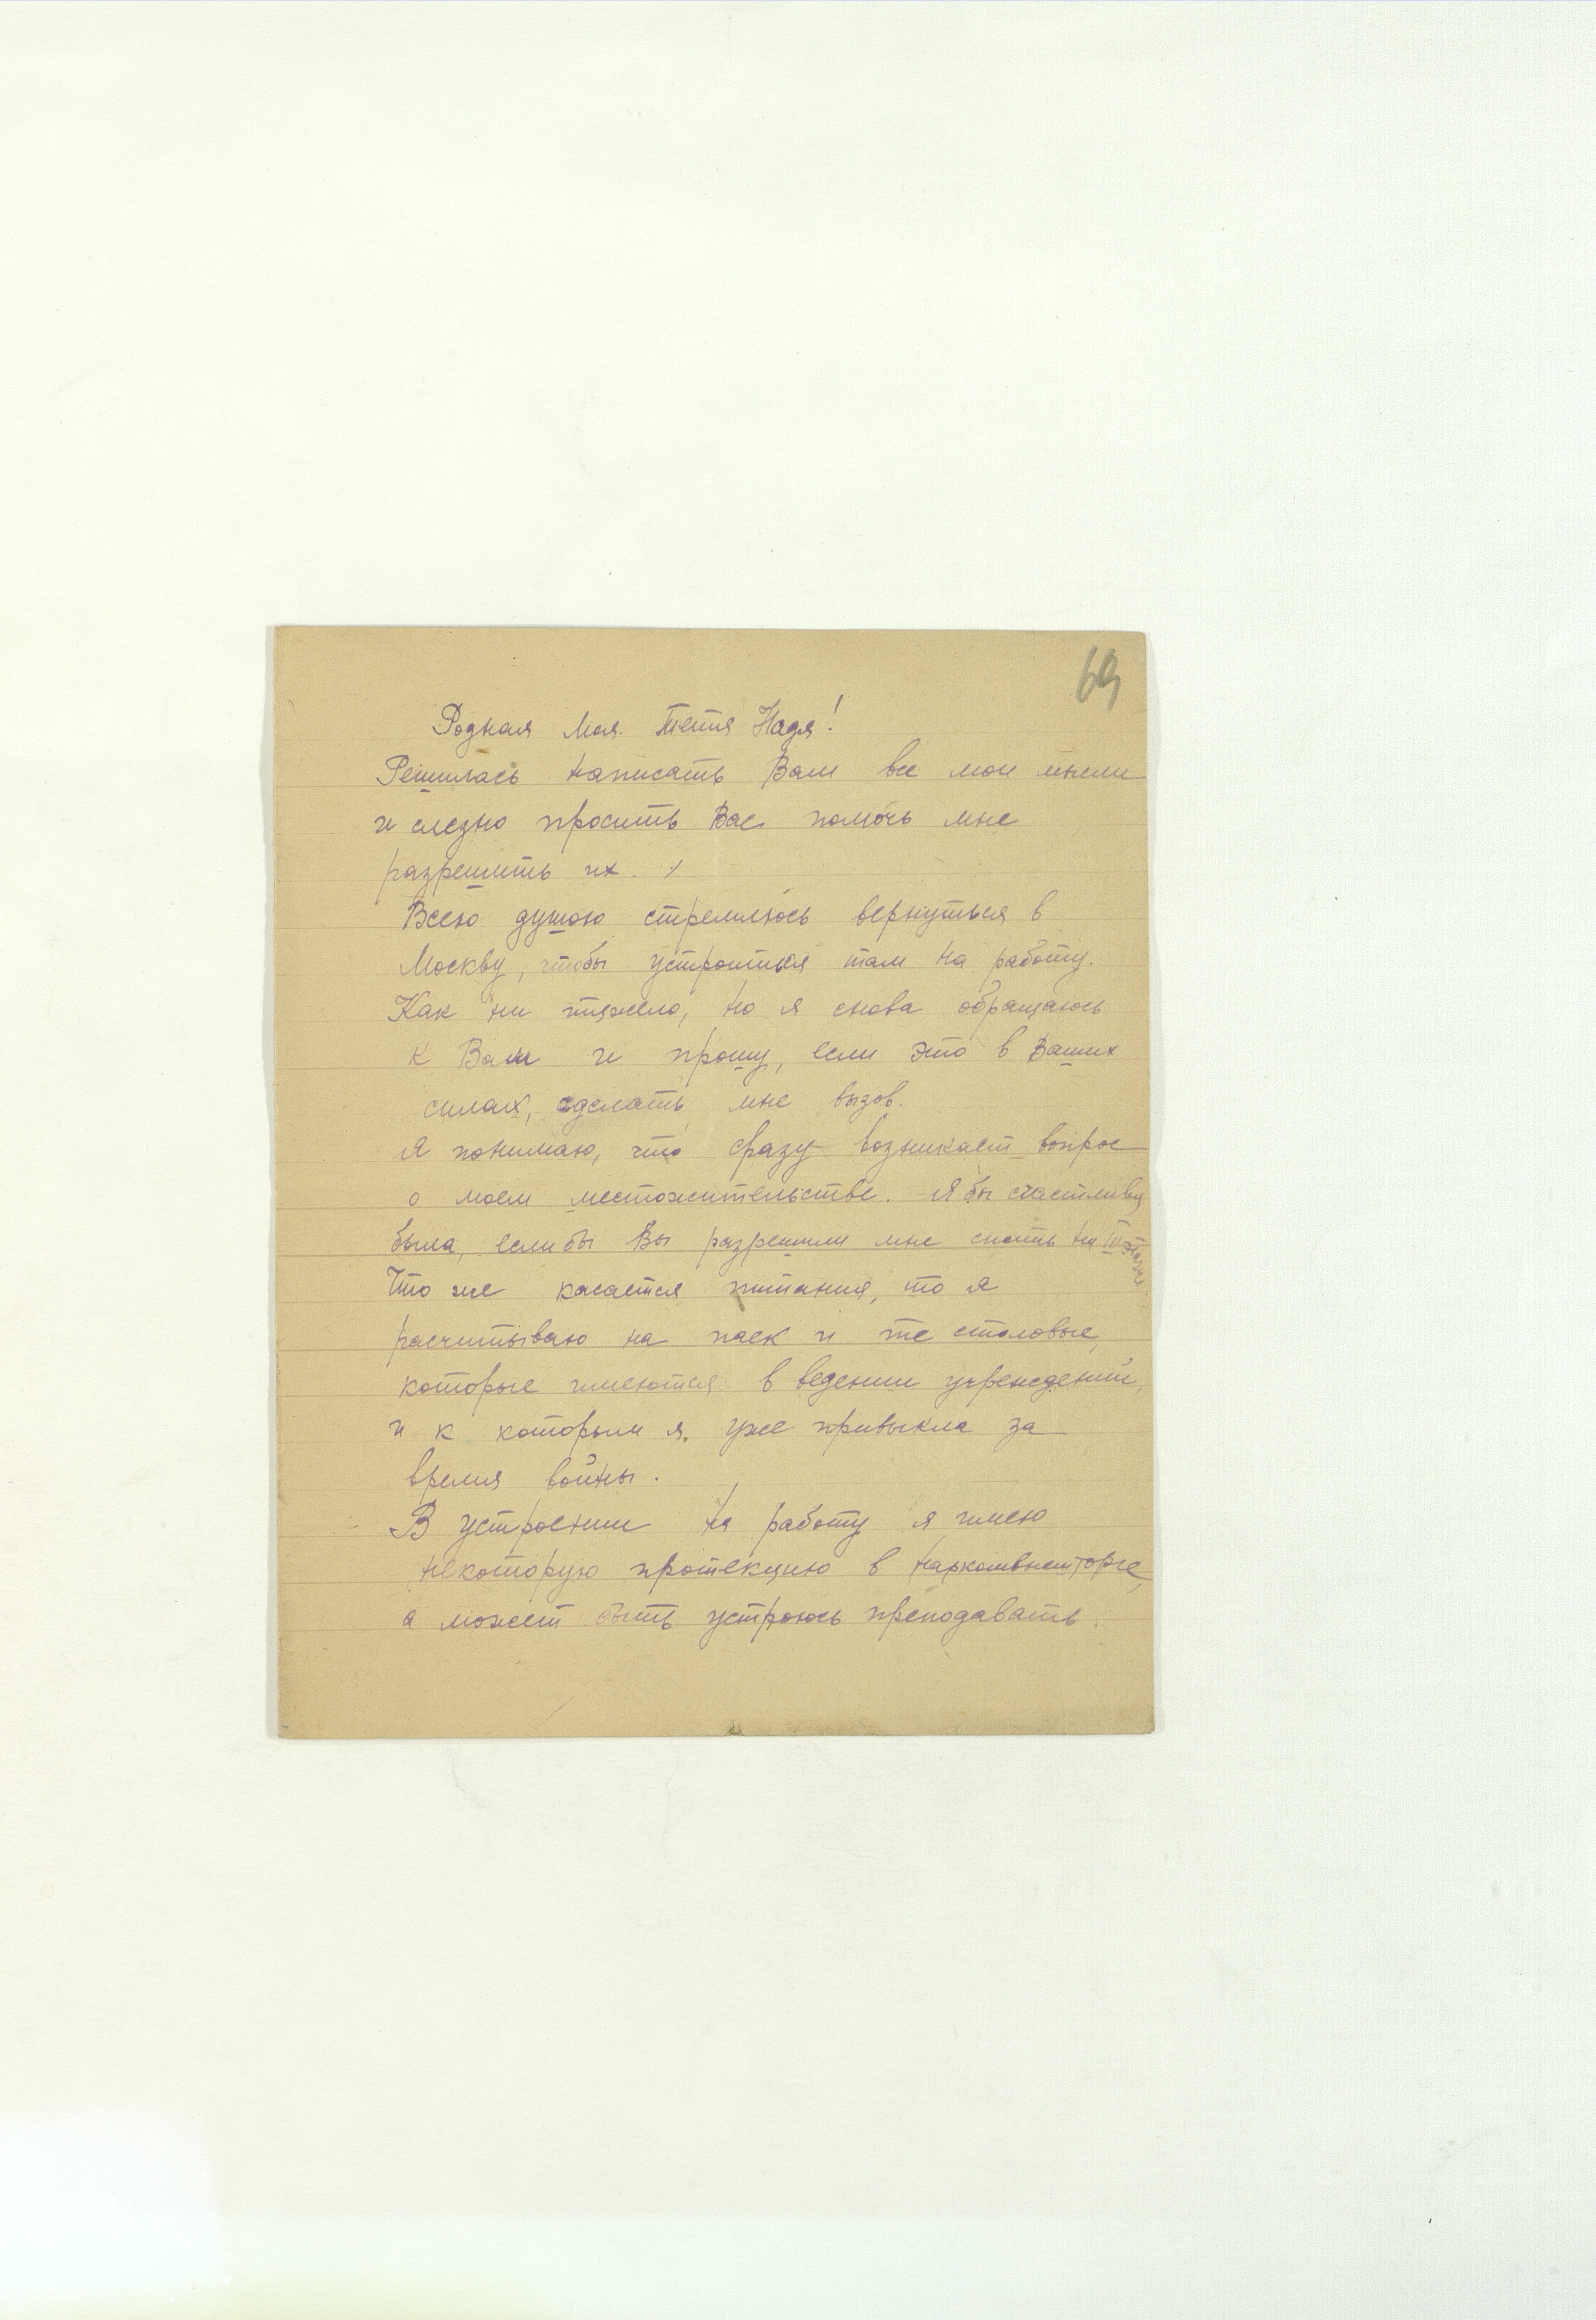 69
Родная моя тетя Надя!
Решилась написать Вам все мои мысли
и слезно просить Вас помочь мне
разрешить их.
Всею душою стремлюсь вернуться в
Москву, чтобы устроиться там на работу.
Как ни тяжело, но я снова обращаюсь
к Вам и прошу, если это в Ваших
силах, сделать мне вызов.
Я понимаю, что сразу возникает вопрос
о моем местожительстве. Я бы счастлива
была, если бы Вы разрешили мне спать на III этаже
Что же касается питания, то я
расчитываю на паек и те столовые,
которые имеются в ведении учреждений,
и к которым я уже привыкла за
время войны.
В устроении на работу я имею
некоторую протекцию в Наркомвнешторге,
а может быть устроюсь преподавать.